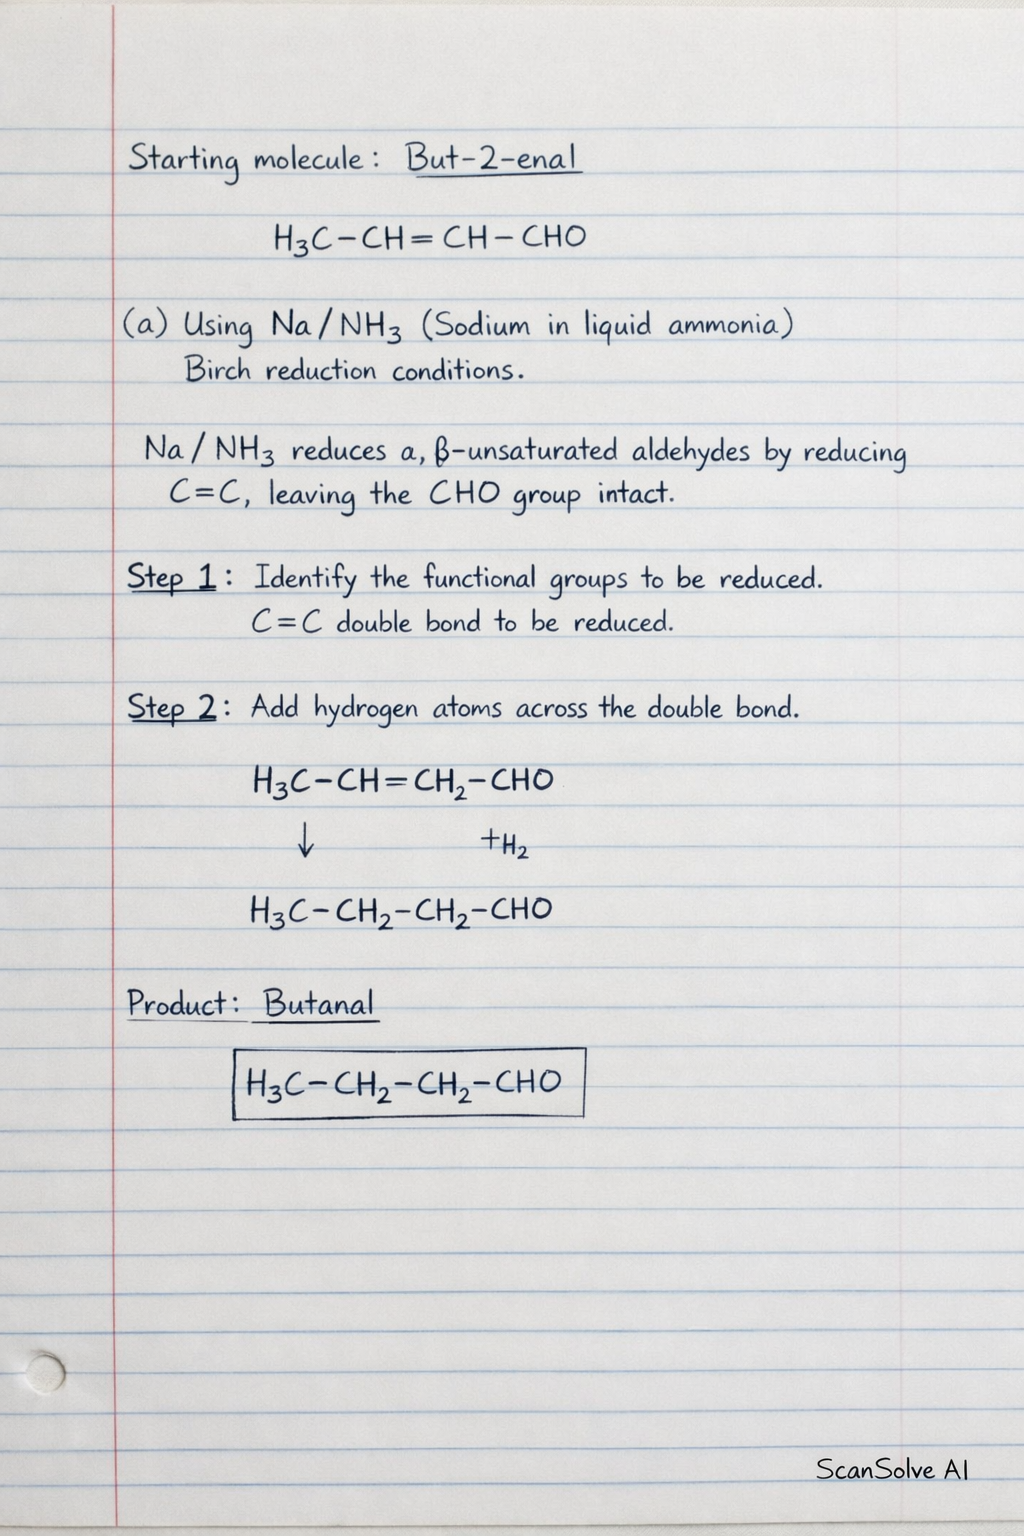 Starting molecule: But-2-enal
H₃C-CH=CH-CHO
(a) Using Na/NH₃ (Sodium in liquid ammonia)
Birch reduction conditions.
Na/NH₃ reduces a, β-unsaturated aldehydes by reducing
C=C, leaving the CHO group intact.
Step 1: Identify the functional groups to be reduced.
C=C double bond to be reduced.
Step 2: Add hydrogen atoms across the double bond.
H₃C-CH=CH₂-CHO
↓ +H₂
H₃C-CH₂-CH₂-CHO
Product: Butanal
H₃C-CH₂-CH₂-CHO
ScanSolve AI